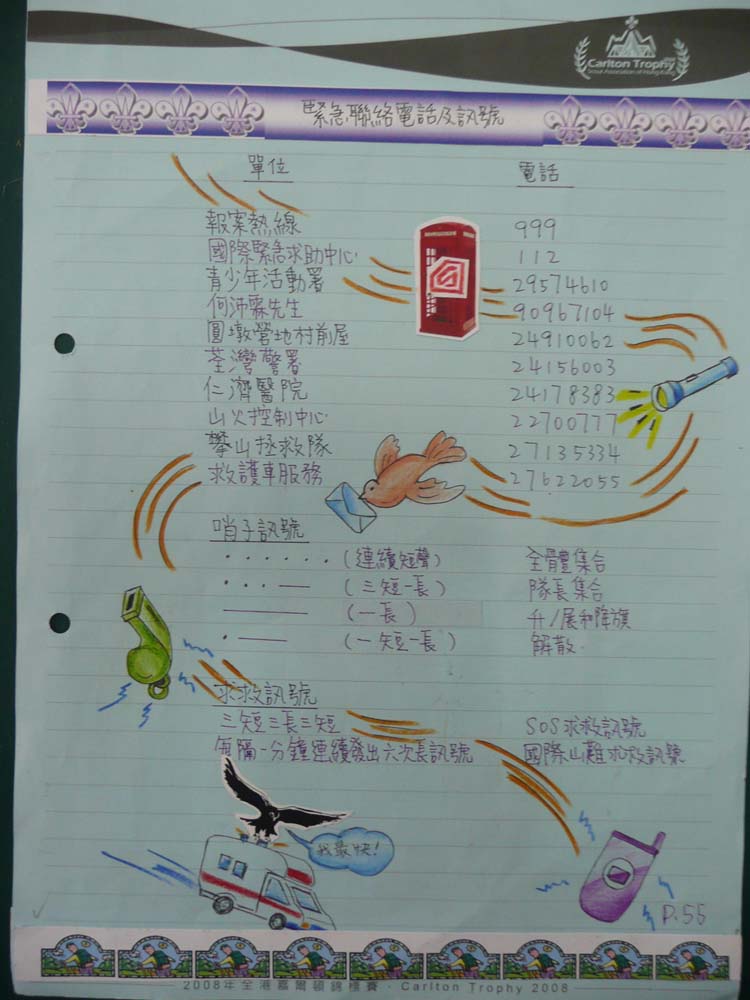 Carlton Trophy
Scout Association of Hong Kong
緊急聯絡電話及訊號
單位 電話
報案熱線 999
國際緊急求助中心 112
青少年活動署 29574610
何沛霖先生 90967104
圓墩營地村前屋 24910062
荃灣警署 24156003
仁濟醫院 24178383
山火控制中心 22700777
攀山拯救隊 27135334
救護車服務 27622055
哨子訊號
· · · · · · (連續短聲) 全體集合
· · · — (三短一長) 隊長集合
—— (一長) 升/展和降旗
· —— (一短一長) 解散
求救訊號
三短三長三短 SOS求救訊號
每隔一分鐘連續發出六次長訊號 國際山難求救訊號
我最快!
P.55
2008年全港嘉爾頓錦標賽 · Carlton Trophy 2008